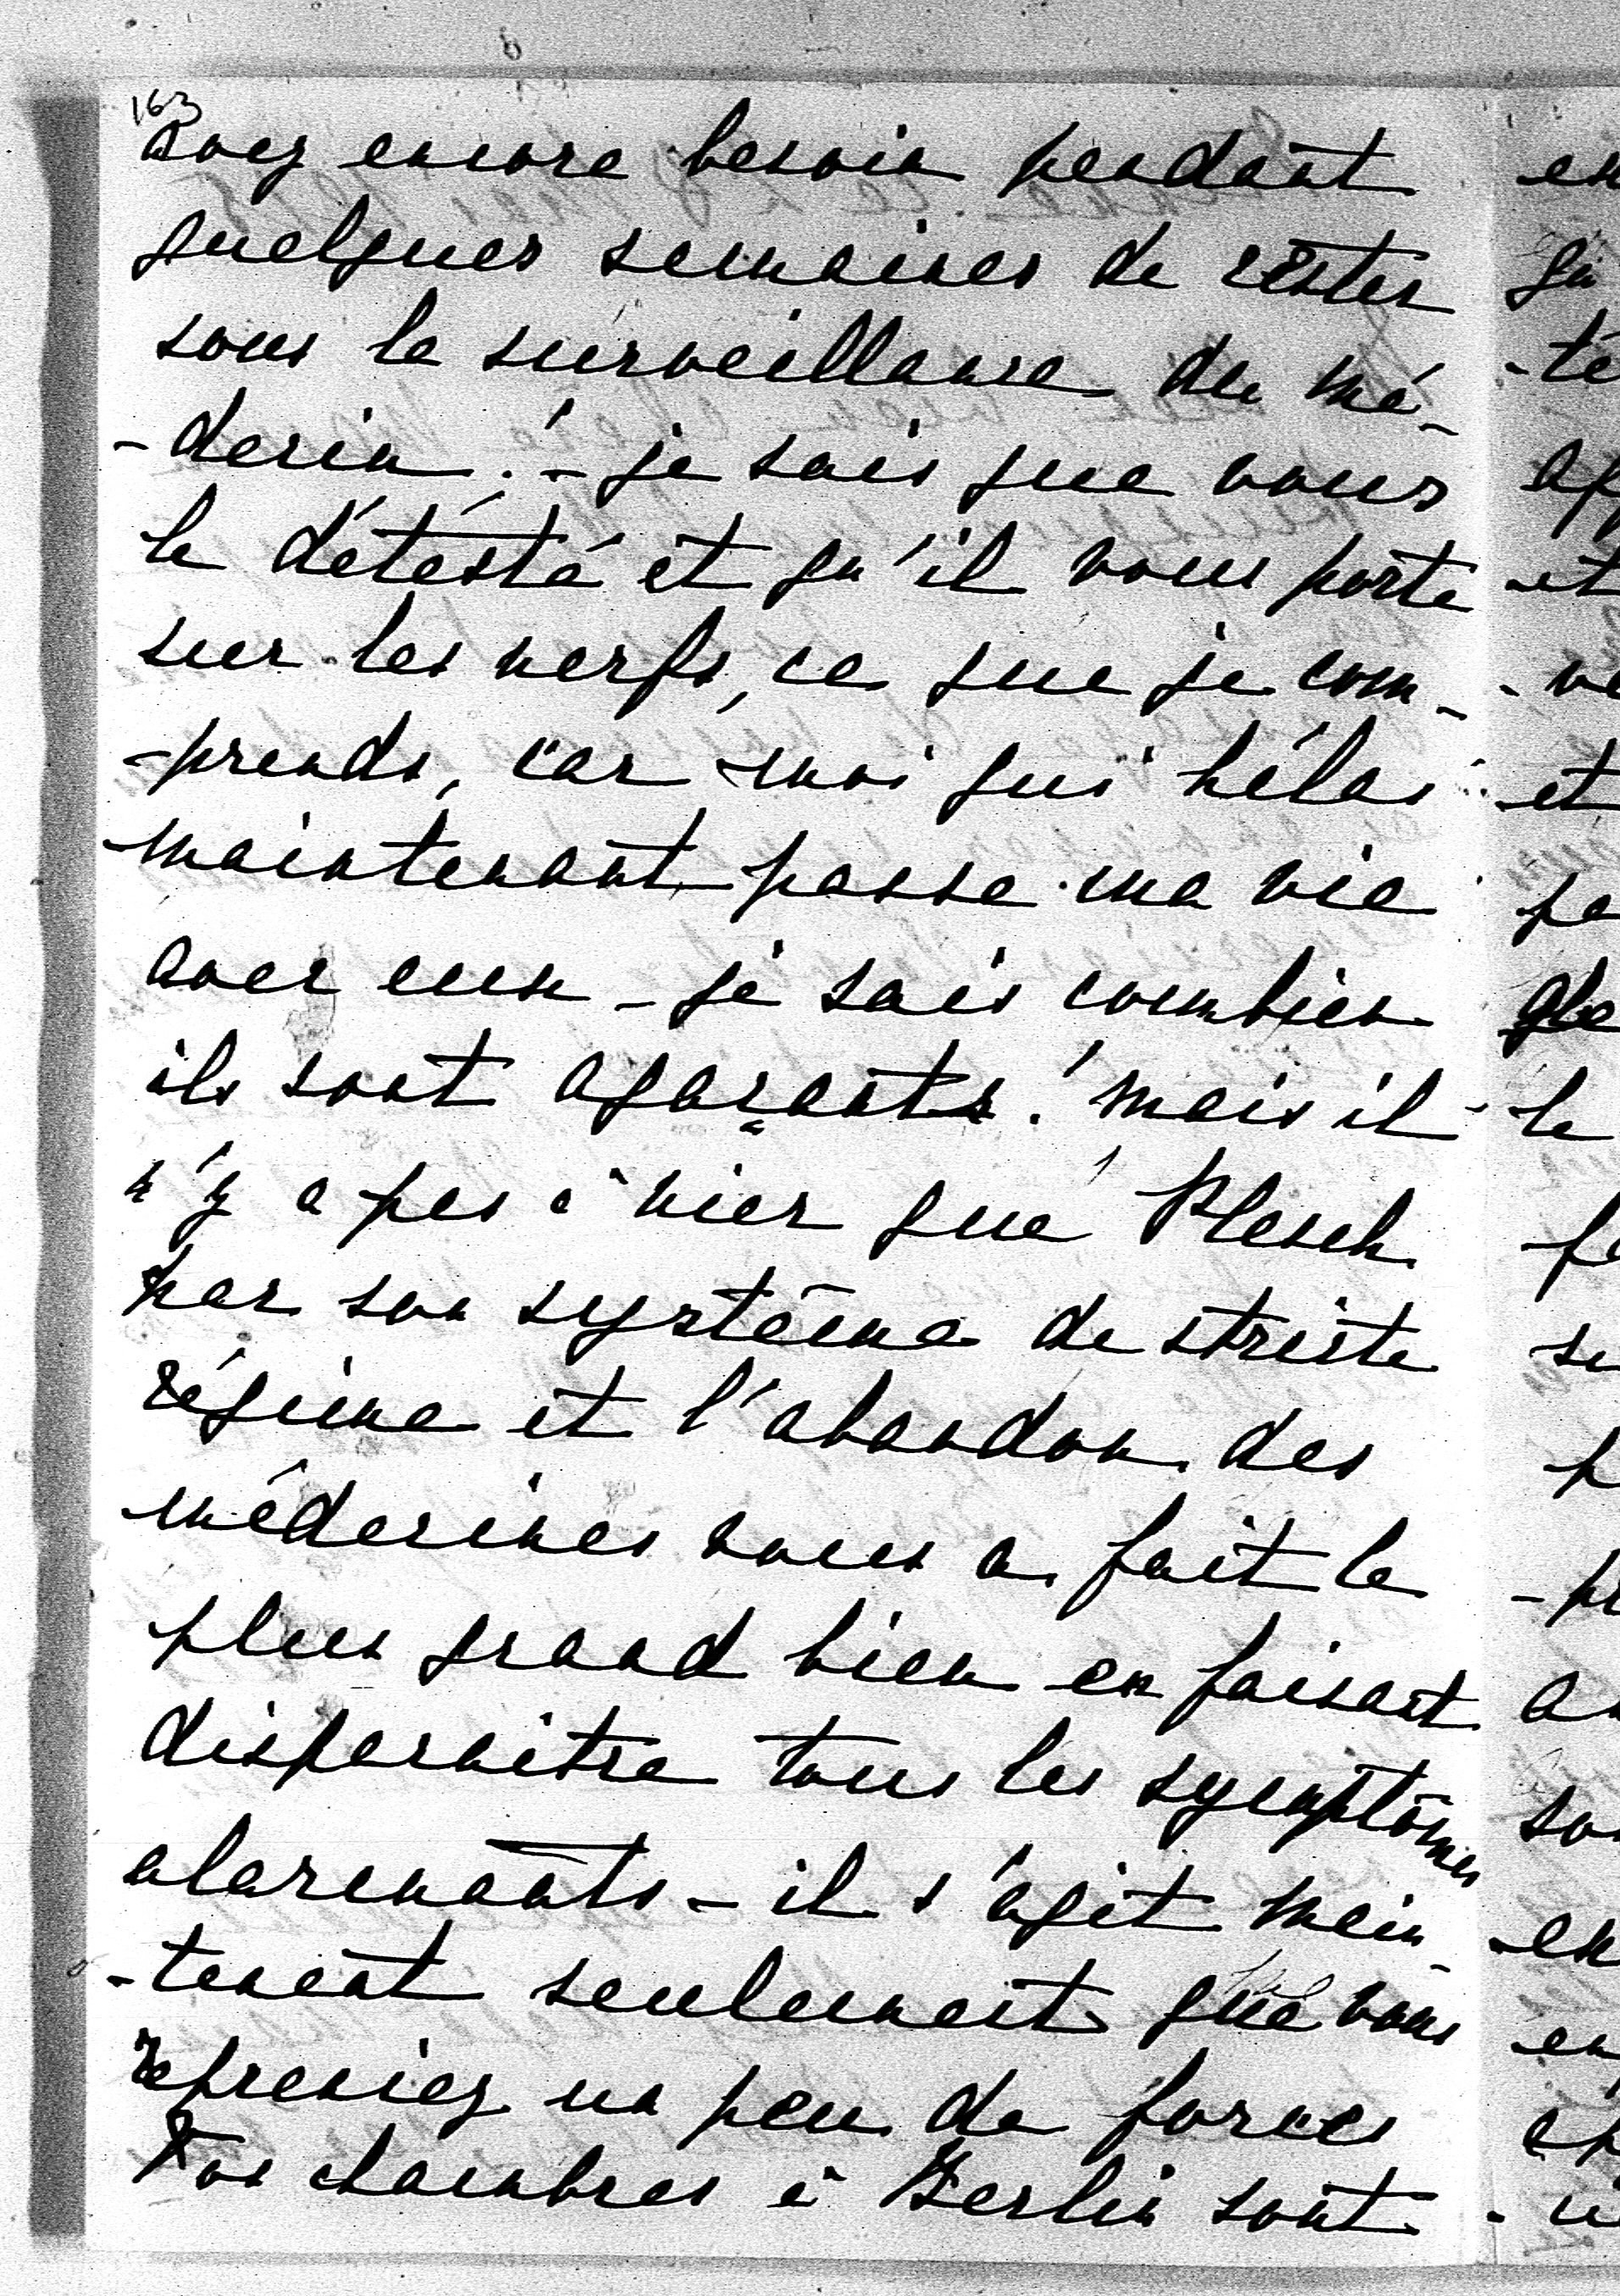 163
avez encore besoin pendant
quelques semaines de rester
sous la surveillance du mé-
-decin! – je sais que vous
le détesté et qu'il vous porte
sur les nerfs, ce que je com-
-prends, car moi qui hélas
maintenant passe ma vie
avec eux – je sais combien
ils sont agaçants! mais il
n'y a pas à nier que Plesch
par son système de stricte
régime et l'abandon des
médecines vous a fait le
plus grand bien en faisant
disparaitre tous les symptômes
alarmants – il s'agit main-
-tenant seulement que vous
repreniez un peu de forces
Vos chambres à Berlin sont